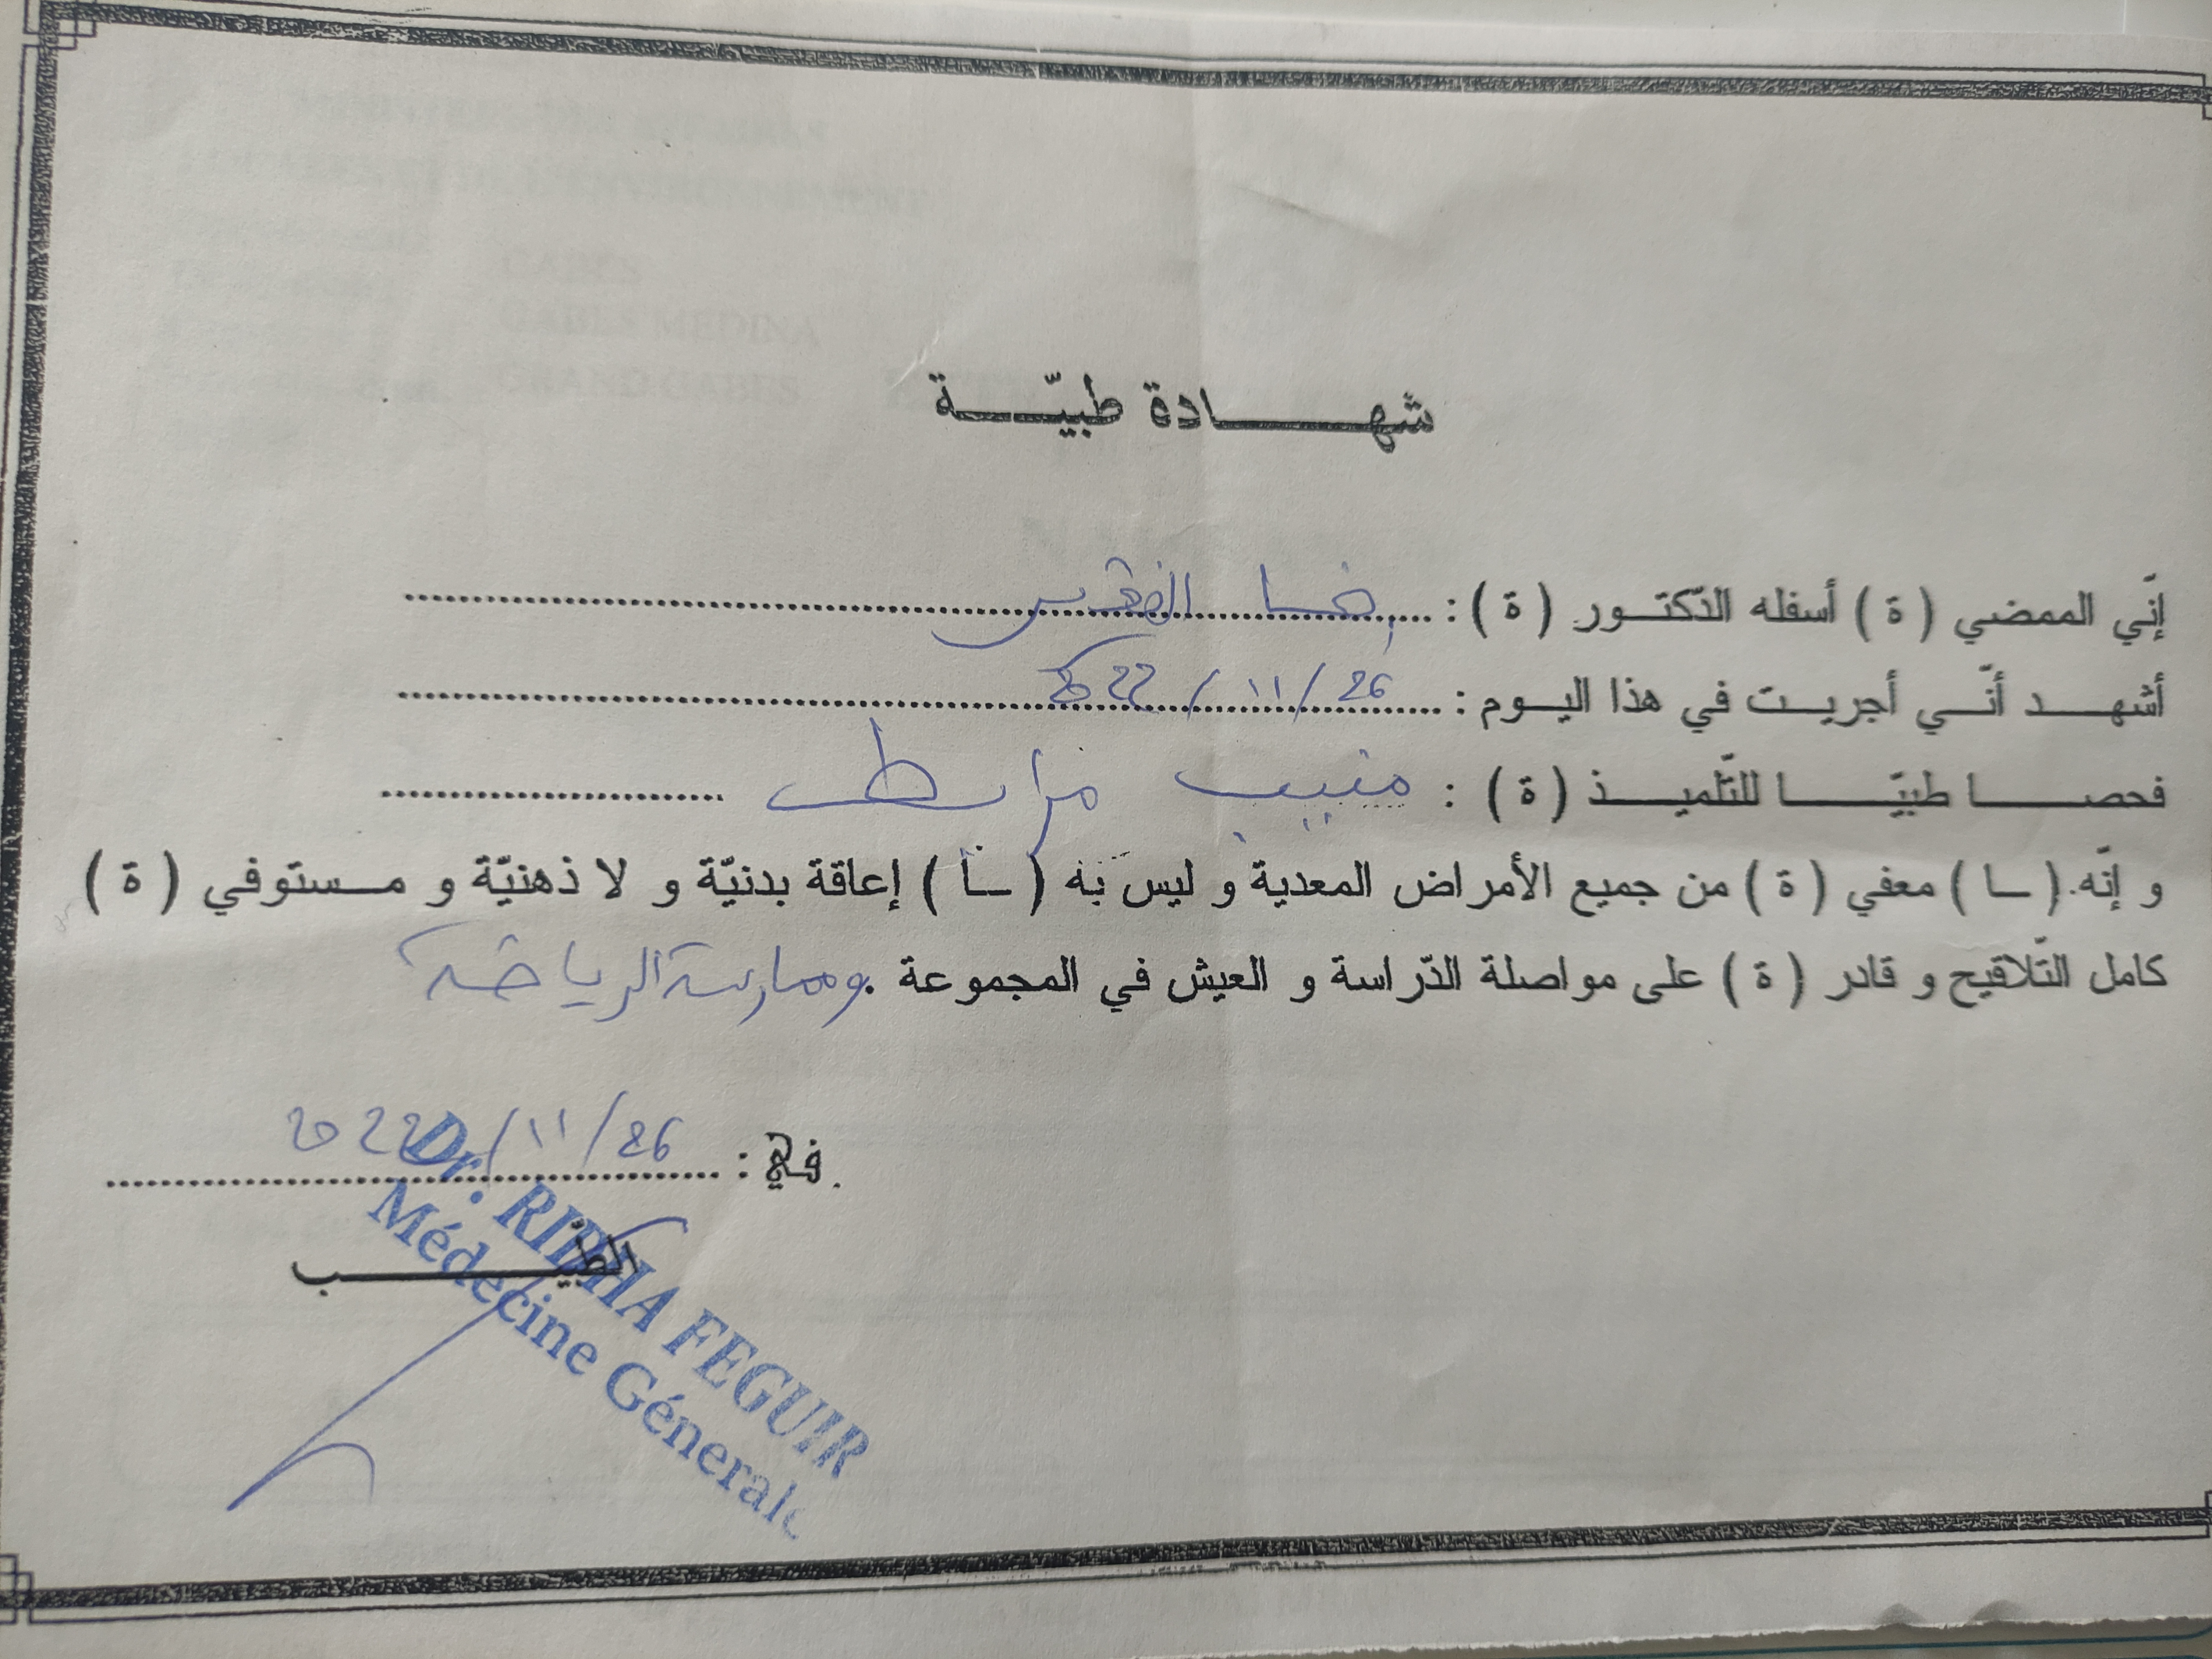 شهادة طبيّة
إنّي الممضي ( ة ) أسفله الدّكتور ( ة ) : رضا الفقير
أشهد أنّي أجريت في هذا اليوم : 26/11/2022
فحصا طبيّا للتّلميذ ( ة ) : منيب مرابط
و إنّه ( ـا ) معفي ( ة ) من جميع الأمراض المعدية و ليس به ( ـا ) إعاقة بدنيّة و لا ذهنيّة و مستوفي ( ة )
كامل التّلاقيح و قادر ( ة ) على مواصلة الدّراسة و العيش في المجموعة . وممارسة الرياضة
في : 26/11/2022
الطبيب
Dr. RIDHA FEGUIR
Médecine Génerale
GABES
GABES MEDINA
GRAND GABES